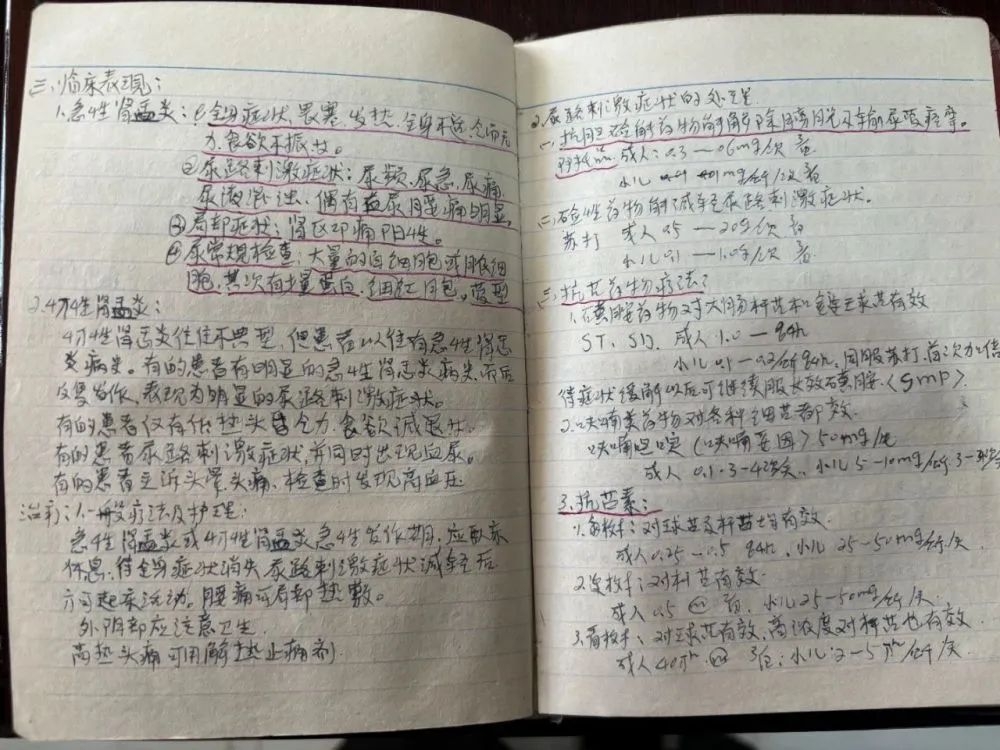 三、临床表现：
1.急性肾盂炎：①全身症状、畏寒、发热、全身不适、全而无
力、食欲不振女。
②尿路刺激症状：尿频、尿急、尿痛、
尿液混浊、偶有血尿、腰痛明显。
③局部症状：肾区叩痛阳性。
④尿常规检查：大量的白细胞或脓细
胞，其次有少量蛋白、细红胞。管型
2.慢性肾盂炎：
慢性肾盂炎往往不典型，但患者以往有急性肾盂
炎病史。有的患者有明显的急性肾盂炎病史，而后
反复发作，表现为明显的尿路刺激症状。
有的患者仅有低热、头昏、乏力、食欲减退状
有的患者尿路刺激症状并同时出现血尿。
有的患者主诉头晕、头痛、检查时发现高血压
治疗：1.一般疗法及护理：
急性肾盂炎或慢性肾盂炎急性发作期，应卧床
休息，待全身症状消失、尿路刺激症状减轻后
方可起床活动。腰痛可局部热敷。
外阴部应注意卫生
高热头痛可用解热止痛剂
2.尿路刺激症状的处理
(一)抗胆硷能药物能解除膀胱及输尿管痉挛。
阿托品 成人：0.3—0.6mg/次
小儿 0.01mg/公斤/次
(二)硷性药物能减轻尿路刺激症状。
苏打 成人 0.5—2.0g/次
小儿 0.1—1.0g/次
(三)抗菌药物疗法：
1.磺胺药物对大肠杆菌和链球菌有效
ST、SD、成人 1.0—q4h
小儿 0.1—0.2/公斤 q4h，同服苏打，首次加倍
待症状缓解以后可继续服长效磺胺〈SMP〉
2.呋喃类药物对各种细菌都效
呋喃呾啶（呋喃妥因）50mg/片
成人 0.1·3-4次/天、小儿 5—10mg/公斤/3-4次
3.抗菌素：
1.氯枚卡：对球菌及杆菌均有效
成人 0.25—0.5 q4h、小儿 25—50mg/公斤/天
2.连枚卡：对杆菌有效
成人 0.5 小儿 25—50mg/公斤/天
3.青枚卡：对球菌有效，高浓度对杆菌也有效
成人 40万u 小儿：2—5万u/公斤/天